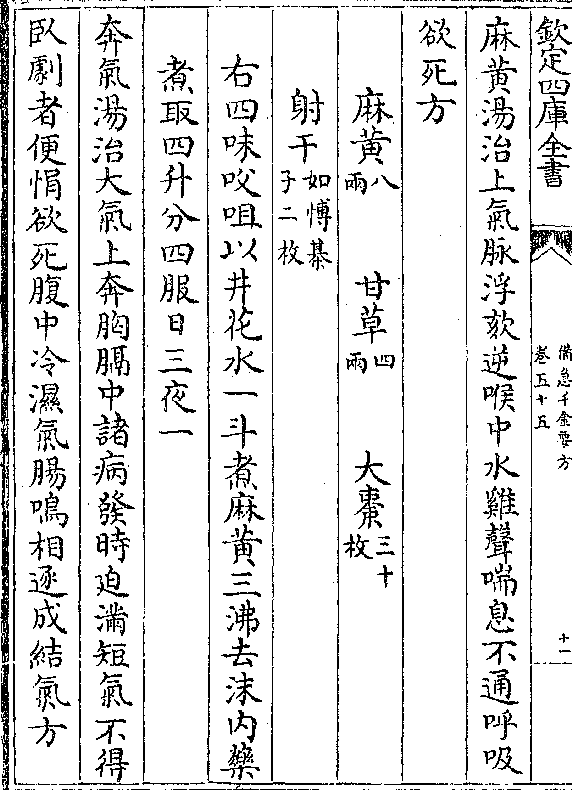 欽定四庫全書
備急千金要方
卷五十五
十一
麻黄湯治上氣脉浮欬逆喉中水雞聲喘息不通呼吸
欲死方
麻黄八兩 甘草四兩 大棗三十枚
射干如博棊子二枚
右四味㕮咀以井花水一斗煮麻黄三沸去沫内藥
煮取四升分四服日三夜一
奔氣湯治大氣上奔胸膈中諸病發時迫滿短氣不得
臥劇者便悁欲死腹中冷濕氣腸鳴相逐成結氣方